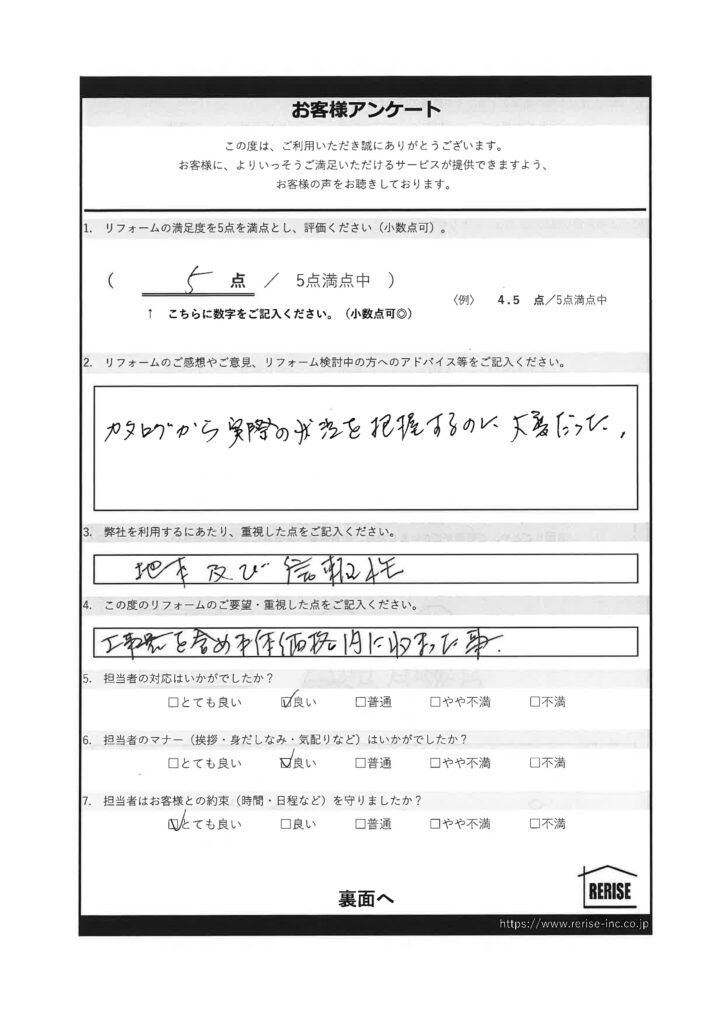 お客様アンケート
この度は、ご利用いただき誠にありがとうございます。
お客様に、よりいっそうご満足いただけるサービスが提供できますよう、
お客様の声をお聴きしております。
1. リフォームの満足度を5点を満点とし、評価ください（小数点可）。
（ 5 点 ／ 5点満点中 ）
〈例〉 4.5 点／5点満点中
↑ こちらに数字をご記入ください。（小数点可◎）
2. リフォームのご感想やご意見、リフォーム検討中の方へのアドバイス等をご記入ください。
カタログから実際の状当を把握するのに大変だった。
3. 弊社を利用するにあたり、重視した点をご記入ください。
地本及び信頼性
4. この度のリフォームのご要望・重視した点をご記入ください。
工事費を含め本体価格内に収まった事.
5. 担当者の対応はいかがでしたか？
□とても良い ☑良い □普通 □やや不満 □不満
6. 担当者のマナー（挨拶・身だしなみ・気配りなど）はいかがでしたか？
□とても良い ☑良い □普通 □やや不満 □不満
7. 担当者はお客様との約束（時間・日程など）を守りましたか？
☑とても良い □良い □普通 □やや不満 □不満
RERISE
裏面へ
https://www.rerise-inc.co.jp